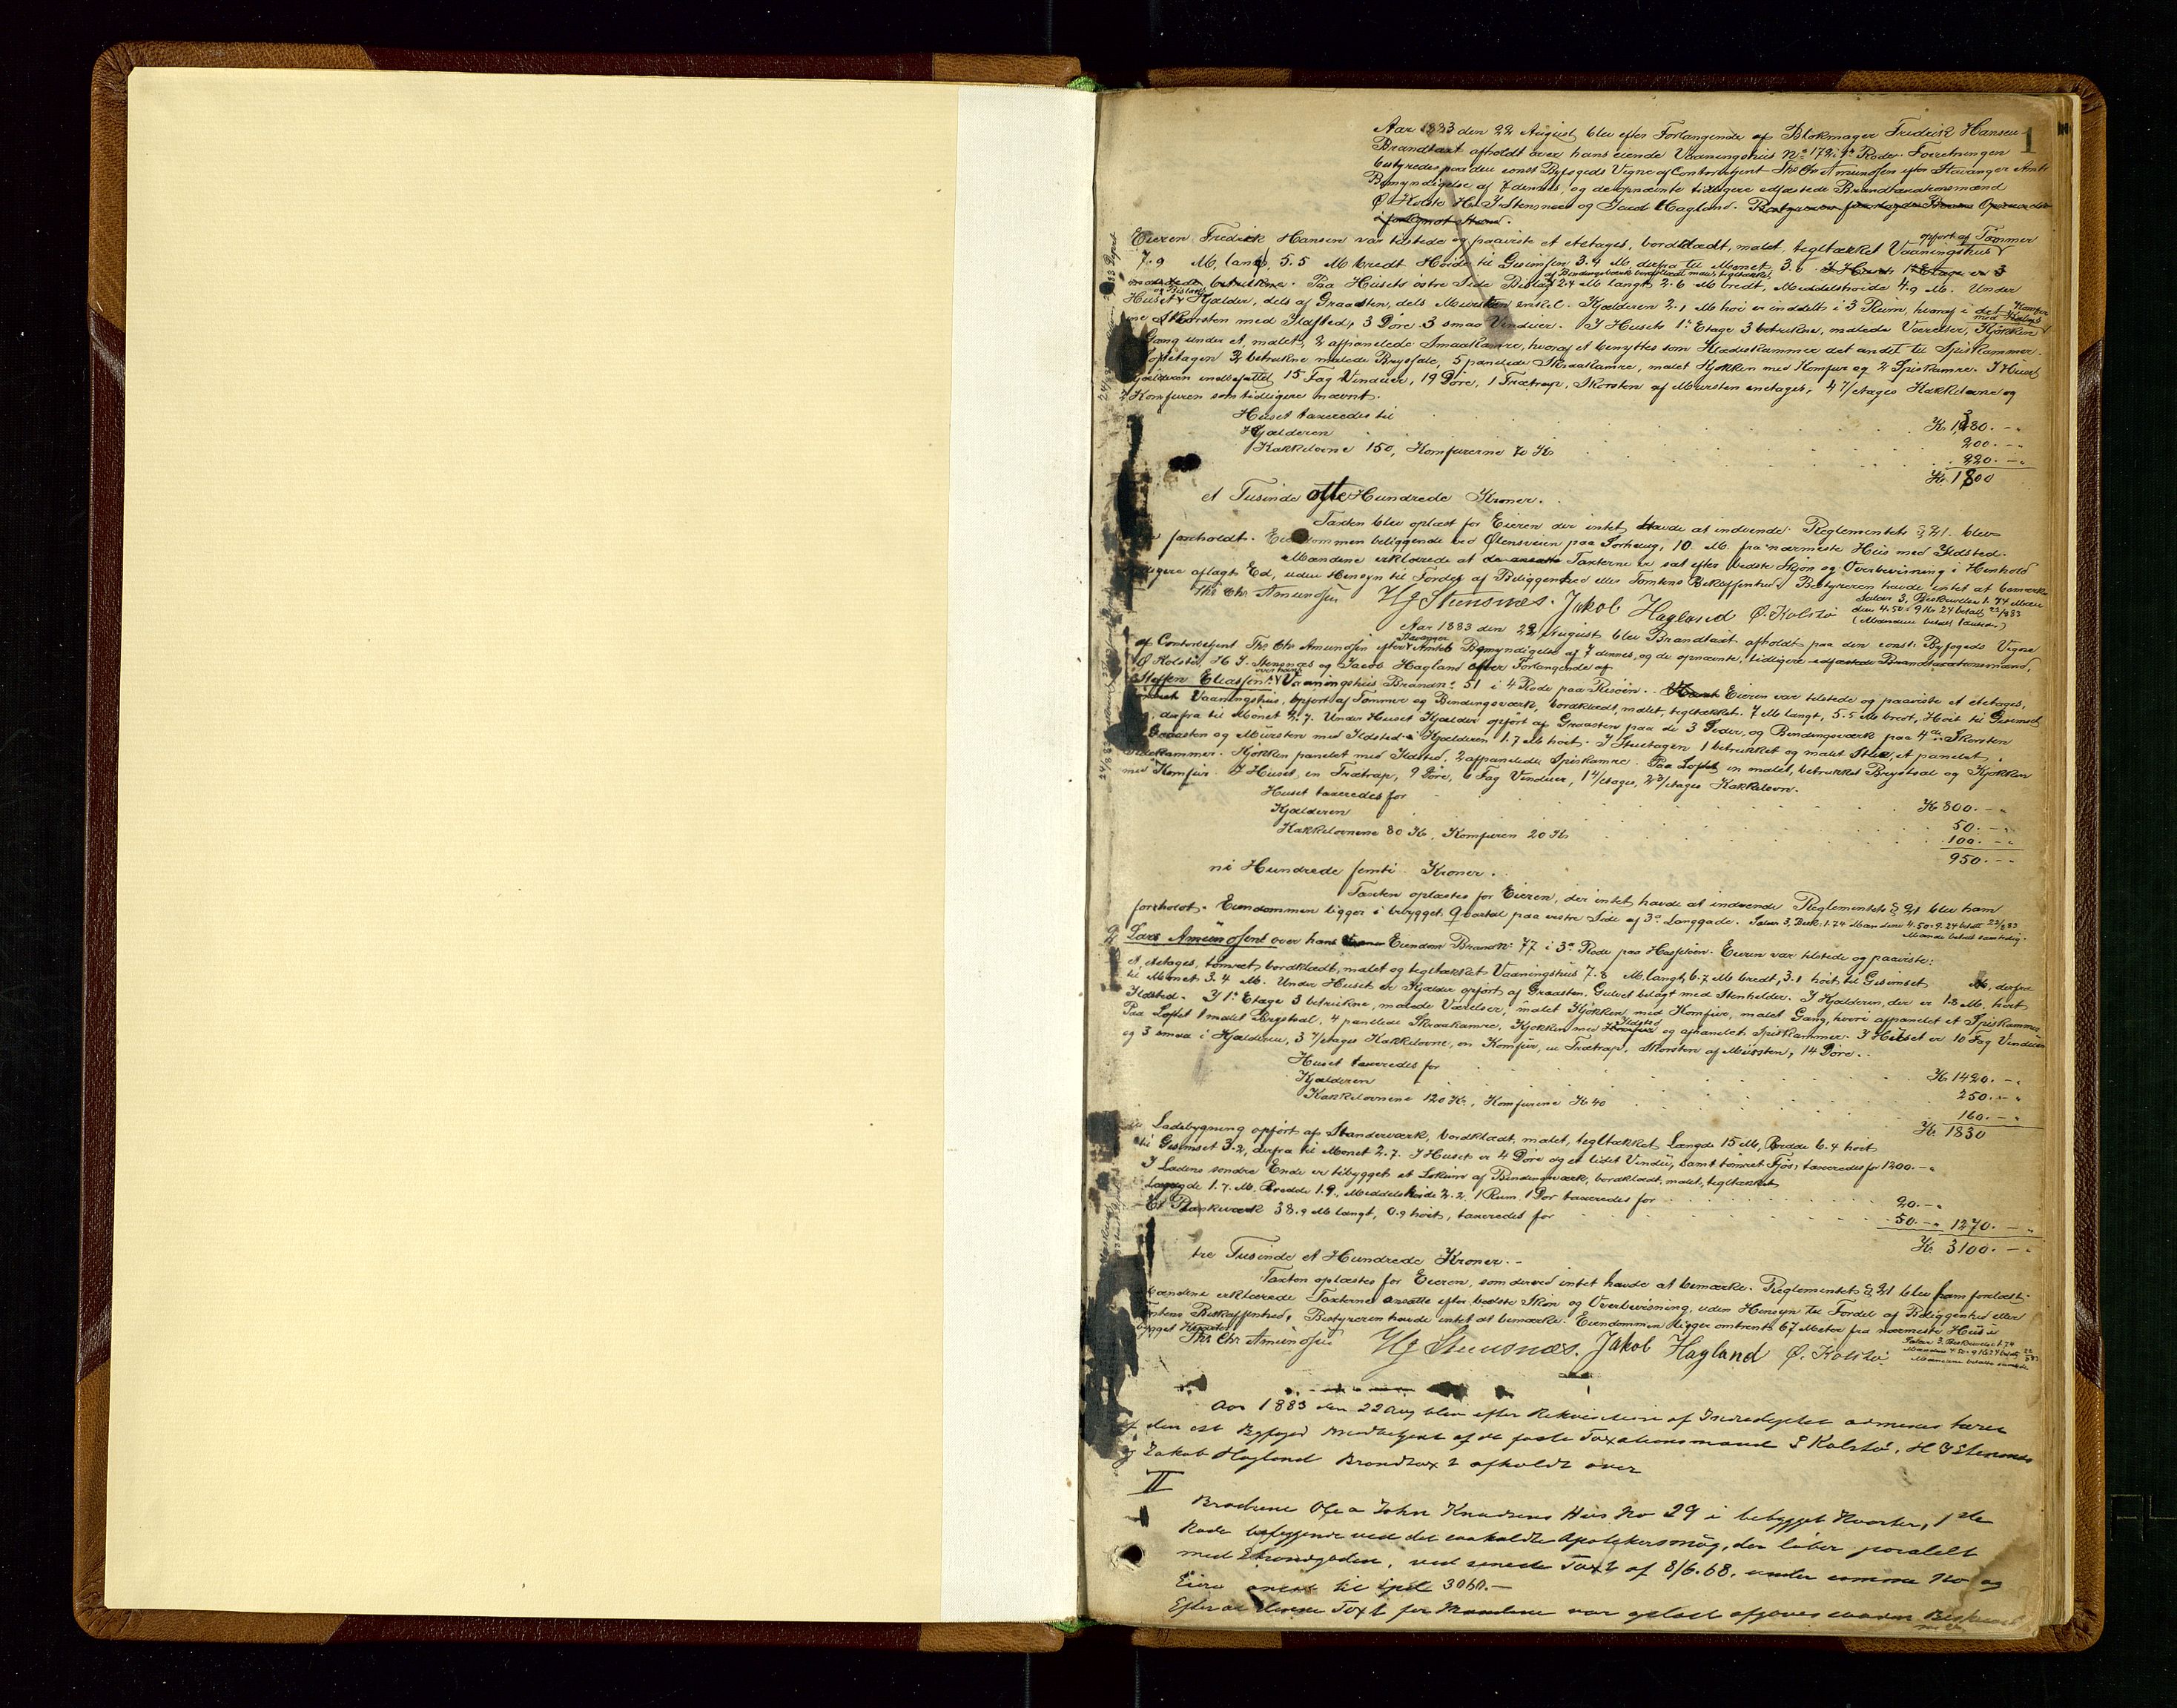 1
Aar 1883 den 22 August blev efter Forlangende af Blokmager Fredrik Hansen
Brandtaxt afholdt over hans eiende Vaaningshus No 172 i 4de Rode. Forretningen
bestyredes paa den const Byfogeds Vegne af Contorbetjent Ths Chr Amundsen efter Stavanger Amts
Bemyndigelse af 7 dennes, og de opnævnte tidligere edfæstede Brandtaxationsmænd
Ø Kolstø H. J. Stensnæs og Jacob Hagland.
Eieren Fredrik Hansen var tilstede og paaviste et etetages, bordklædt, malet, tegltækket Vaaningshus opført af Tømmer
7.9 M. langt, 5.5 M bredt Høide til Gesimsen 3.9 M. derfra til Mønet 3.6
Paa Husets østre Side Bislag af Bindingsværk bordklædt malet, tegltækket, 2.4 M langt, 2.6 M bredt, Middelshøide 4.9 M. Under
Huset og Bislag Kjælder, dels af Graasten, dels Mursten enkel. Kjælderen 2.1 M høi er inddelt i 3 Rum, hvoraf i det
ene Skorsten med Ildsted, 3 Døre 3 smaa Vinduer. I Husets 1ste Etage 3 betrukne, malede Værelser, Kjøkken med Komfur
Gang under et, malet, 2 afpanelede Smaakamre, hvoraf et benyttes som Klædeskammer det andet til Spiskammer.
Loftetagen 2 betrukne malede Brystsale, 5 panelede Skraakamre, malet Kjøkken med Komfur og 2 Spiskamre. I Huset
Kjælderen indbefattet 15 Fag Vinduer, 19 Døre, 1 Trætrap, Skorsten af Mursten enetages, 4 1/etages Kakkelovne og
2 Komfuren som tidligere nævnt.
Huset taxeredes til Kr. 1380. -
Kjælderen 200. -
Kakkelovne 150, Komfurerne 70 Kr 220. -
Kr. 1800
et Tusinde otte Hundrede Kroner.
Taxten blev oplæst for Eieren der intet havde at indvende. Reglementets § 21 blev
foreholdt. Eiendommen beliggende ved Ølensveien paa Sørhaug, 10 M. fra nærmeste Hus med Ildsted.
Mændene erklærede at Taxterne er sat efter bedste Skjøn og Overbevisning i Henhold
aflagt Ed, uden Hensyn til Fordel af Beliggenhed eller Tomtens Beskaffenhed. Bestyreren havde intet at bemærke
Ths Chr Amundsen HJ Stensnæs. Jakob Hagland Ø. Kolstø
Aar 1883 den 22 August blev Brandtaxt afholdt paa den const. Byfogeds Vegne
af Contorbetjent Ths Chr Amundsen efter Stavanger Amts Bemyndigelse af 7 dennes, og de opnævnte, tidligere edfæstede Brandtaxationsmænd
Ø Kolstø, H J. Stensnæs og Jacob Hagland efter Forlangende af
Steffen Eliassen over hans Vaaningshus Brandno 51 i 4 Rode paa Risøen. Eieren var tilstede og paaviste et etetages,
Vaaningshus, opført af Tømmer og Bindingsværk, bordklædt, malet, tegltækket. 7 M langt, 5.5 M bredt, Høit til Gesimset
derfra til Mønet 2.7. Under Huset Kjælder opført af Graasten paa de 3 Sider, og Bindingsværk paa 4de Skorsten
Graasten og Mursten med Ildsted i Kjælderen 1.7 M høit. I Stuetagen 1 betrukket og malet Stue, et panelet
Sidekammer. Kjøkken panelet med Ildsted, 2 afpanelede Spiskamre. Paa Loftet en malet, betrukket Brystsal og Kjøkken
med Komfur. I Huset, en Trætrap, 9 Døre, 6 Fag Vinduer, 1 4/etages, 2 3/etages Kakkelovn.
Huset taxeredes for Kr 800. -
Kjælderen 50. -
Kakkelovnene 80 Kr, Komfuren 20 Kr 100. -
950. -
ni Hundrede femti Kroner.
Taxten oplæstes for Eieren, der intet havde at indvende Reglementets § 21 blev ham
foreholdt. Eiendommen ligger i bebygget Qvartal paa vestre Side af 3die Langgade.
Lars Amundsens over hans Eiendom Brandno 77 i 3die Rode paa Hasseløen. Eieren var tilstede og paaviste:
et etetages, tømret, bordklædt, malet og tegltækket Vaaningshus 7.8 M. langt, 6.7 M bredt, 3.1 høit til Gesimset M, derfra
til Mønet 3.4 M. Under Huset er Kjælder opført af Graasten, Gulvet belagt med Stenheller. I Kjælderen, der er 1.8 M. høit
Ildsted. I 1ste Etage 3 betrukne, malede Værelser, malet Kjøkken med Komfur, malet Gang, hvori afpanelet et Spiskammer.
Paa Loftet 1 malet Brystsal, 4 panelede Skraakamre, Kjøkken med Ildsted og afpanelet Spiskammer. I Huset er 10 Fag Vinduer
og 3 smaa i Kjælderen, 3 3/etages Kakkelovne, en Komfur, en Trætrap, Skorsten af Mursten, 14 Døre.
Huset taxeredes for Kr 1420. -
Kjælderen 250. -
Kakkelovnene 120 Kr., Komfurene Kr 40 160. -
Kr. 1830
Ladebygning opført af Standerværk, bordklædt, malet, tegltækket Længde 15 M, Bredde 6.4 høit
til Gesimset 3.2, derfra til Mønet 2.7. I Huset er 4 Døre og et lidet Vindu, samt tømret Fjøs, taxeredes for 1200. -
I Ladens søndre Ende er tilbygget et Lokum af Bindingsværk, bordklædt, malet, tegltækket
Længde 1.7. M. Bredde 1.9, Middelshøide 2.2. 1 Rum 1 Dør taxeredes for 20. -
Et Plankeværk 38.9 M langt, 0.9 høit, taxeredes for 50. - 1270. -
Kr 3100. -
tre Tusinde et Hundrede Kroner. -
Taxten oplæstes for Eieren, som derved intet havde at bemærke. Reglementets § 21 blev ham foreholdt.
Mændene erklærede Taxterne ansatte efter bedste Skjøn og Overbevisning, uden Hensyn til Fordel af Beliggenhed eller
Tomtens Beskaffenhed. Bestyreren havde intet at bemærke. Eiendommen ligger omtrent 67 Meter fra nærmeste Hus i
bygget Kvarter
Ths Chr Amundsen HJ Stensnæs. Jakob Hagland Ø. Kolstø
Aar 1883 den 22 Aug blev efter Rekvisition af
af den cst Byfoged med af de faste Taxationsmænd Ø Kolstø, H J Stensnæs
og Jakob Hagland Brandtaxt afholdt over
II
Brødrene Ole & John Knudsens Hus No 29 i bebygget Kvarter, 1ste
Rode beliggende ved det saakaldte Apothekersmug, der løber paralelt
med Strandgaden, ved seneste Taxt af 8/6.68, under samme No og
Eiere ansat til Spd 3060. -
Efter at denne Taxt for Mændene var oplæst afgaves saadan Beskrivelse